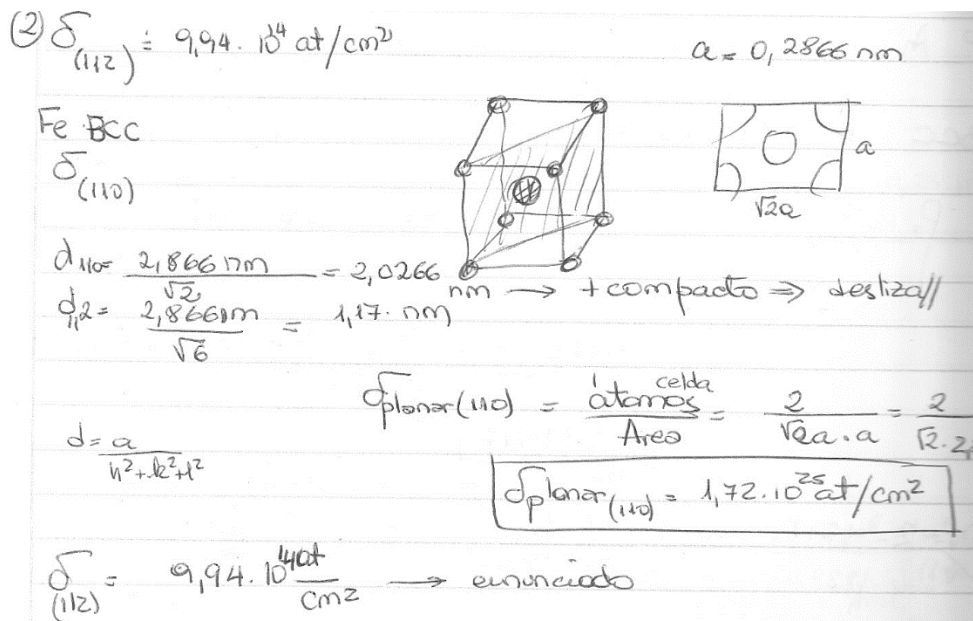 ② δ(112) = 9,94. 10^14 at/cm²
a = 0,2866 nm
Fe BCC
δ(110)
a
√2a
d110= 2,866 nm / √2 = 2,0266 nm → + compacto ⇒ desliza//
d112= 2,866nm / √6 = 1,17. nm
δplanar(110) = átomos celda / Area = 2 / √2a.a = 2 / √2.2,
d= a / h²+k²+l²
δplanar(110) = 1,72.10^25 at/cm²
δ(112) = 9,94. 10^14 at / cm² → enunciado